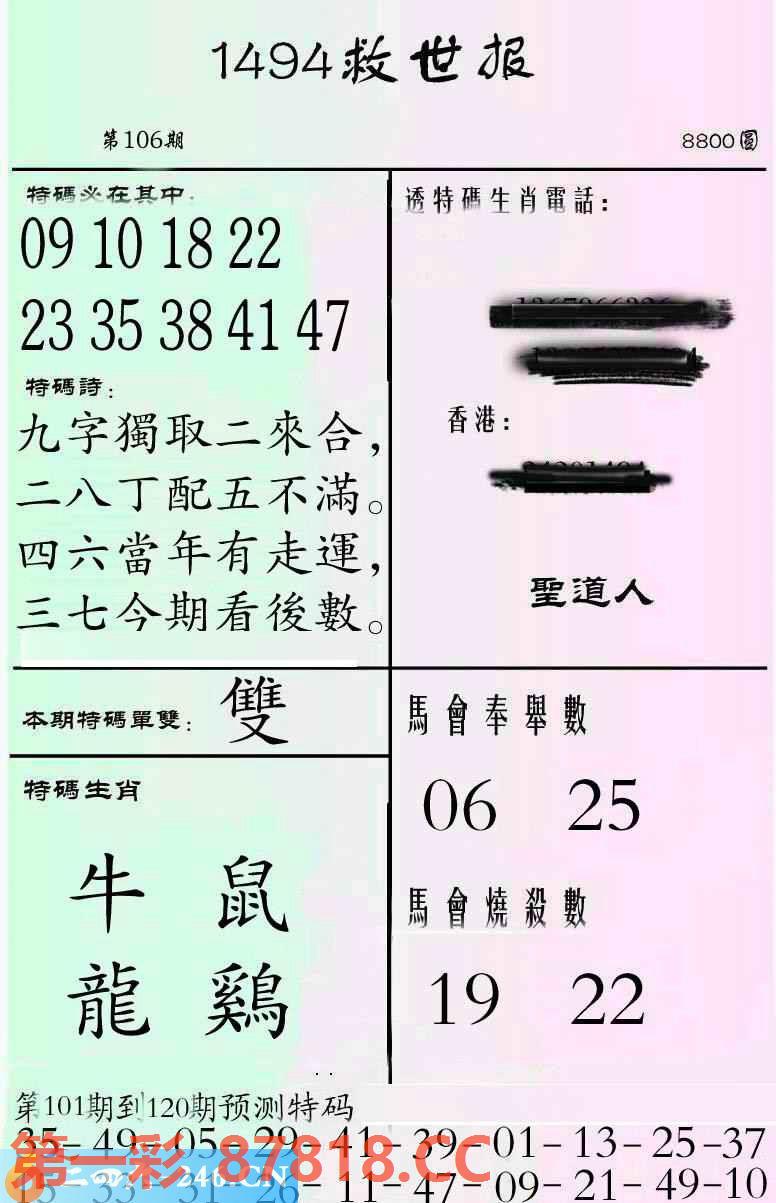 1494救世报
第106期
8800圓
特碼必在其中:
09 10 18 22
23 35 38 41 47
特碼詩:
九字獨取二來合，
二八丁配五不滿。
四六當年有走運，
三七今期看後數。
透特碼生肖電話:
香港:
聖道人
本期特碼單雙: 雙
特碼生肖
牛 鼠
龍 鷄
馬會奉舉數
06 25
馬會燒殺數
19 22
第101期到120期预测特码
35-49-05-29-41-39-01-13-25-37
11-47-09-21-49-10
第一彩.87818.CC
246.CN